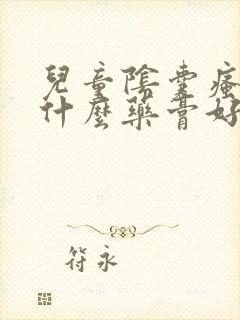 兒童陰囊瘙
什麼藥膏好
符永